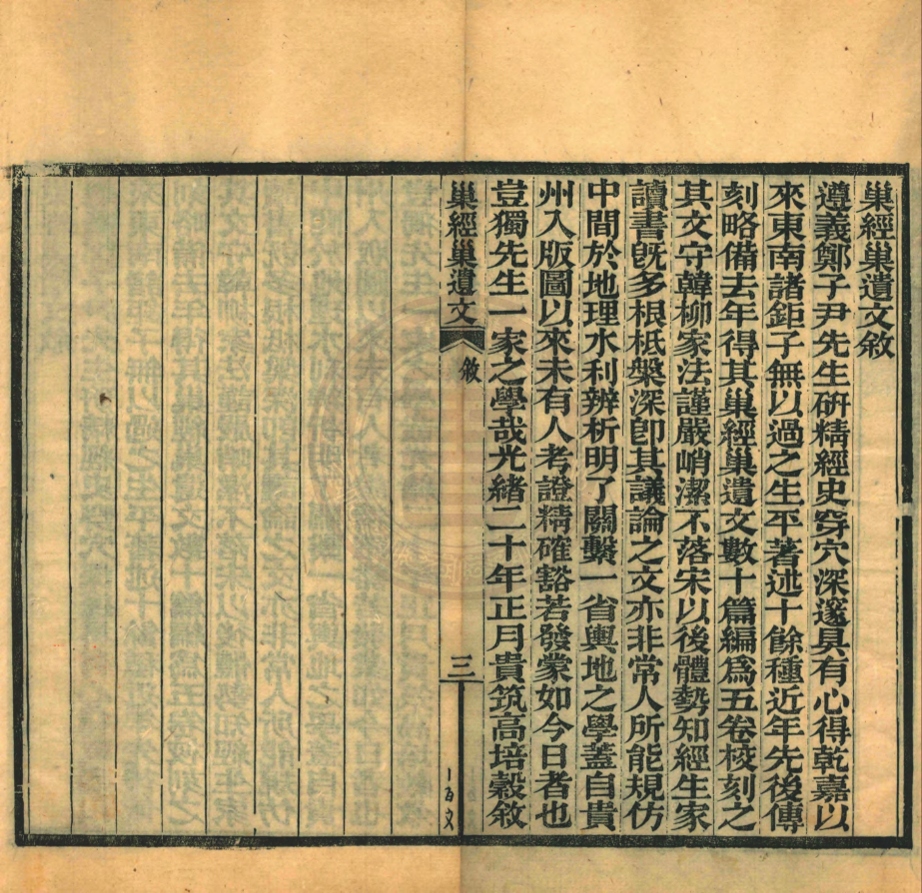 巢經巢遺文敘
遵義鄭子尹先生硏精經史穿穴深邃具有心得乾嘉以
來東南諸鉅子無以過之生平著述十餘種近年先後傳
刻略備去年得其巢經巢遺文數十篇編爲五卷校刻之
其文守韓柳家法謹嚴峭潔不落宋以後體勢知經生家
讀書旣多根柢槃深卽其議論之文亦非常人所能規仿
中間於地理水利辨析明了關繫一省輿地之學蓋自貴
州入版圖以來未有人考證精確豁若發蒙如今日者也
豈獨先生一家之學哉光緒二十年正月貴筑高培穀敘
巢經巢遺文
敘
三